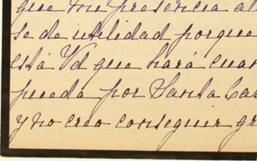 que mi presencia al
se da utilidad porque
está Vd que hará cuan
pueda por Santa Cla
y no creo conseguir gr